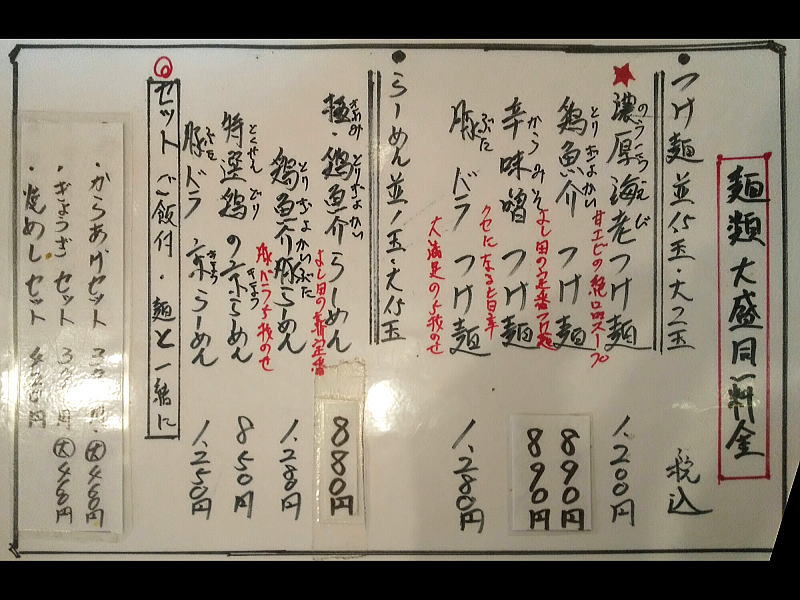 麺類大盛同一料金
税込
・つけ麺 並1.5玉・大2玉
★濃厚海老つけ麺 1,200円
のうこうえび
甘エビの絶品スープ
鶏魚介 つけ麺 890円
とりぎょかい
よし田の定番つけ麺
辛味噌 つけ麺 890円
からみそ
クセになる旨辛
豚ドラ つけ麺 1,280円
ぶた
大満足の千枚のせ
・らーめん 並1玉・大1.5玉
極・鶏魚介らーめん 880円
きわみ とりぎょかい
よし田の新定番
鶏魚介豚らーめん 1,280円
とりぎょかいぶた
豚バラ千枚のせ
特選鶏の京らーめん 850円
とくせんどり きょう
豚ドラ 京らーめん 1,250円
ぶた きょう
◎セット ご飯付・麺と一緒に
・からあげセット 大460円
・ぎょうざセット 大
・焼めしセット